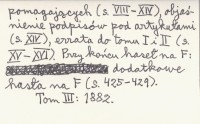 pomagających (s. VIII-XIV), objaś-
nienie podpisów pod artykułami
(s. XIV), errata do tomu I i II (s.
XV-XVI). Przy końcu haseł na F:
dodatkowe
hasła na F (s. 425-429).
Tom III: 1882.